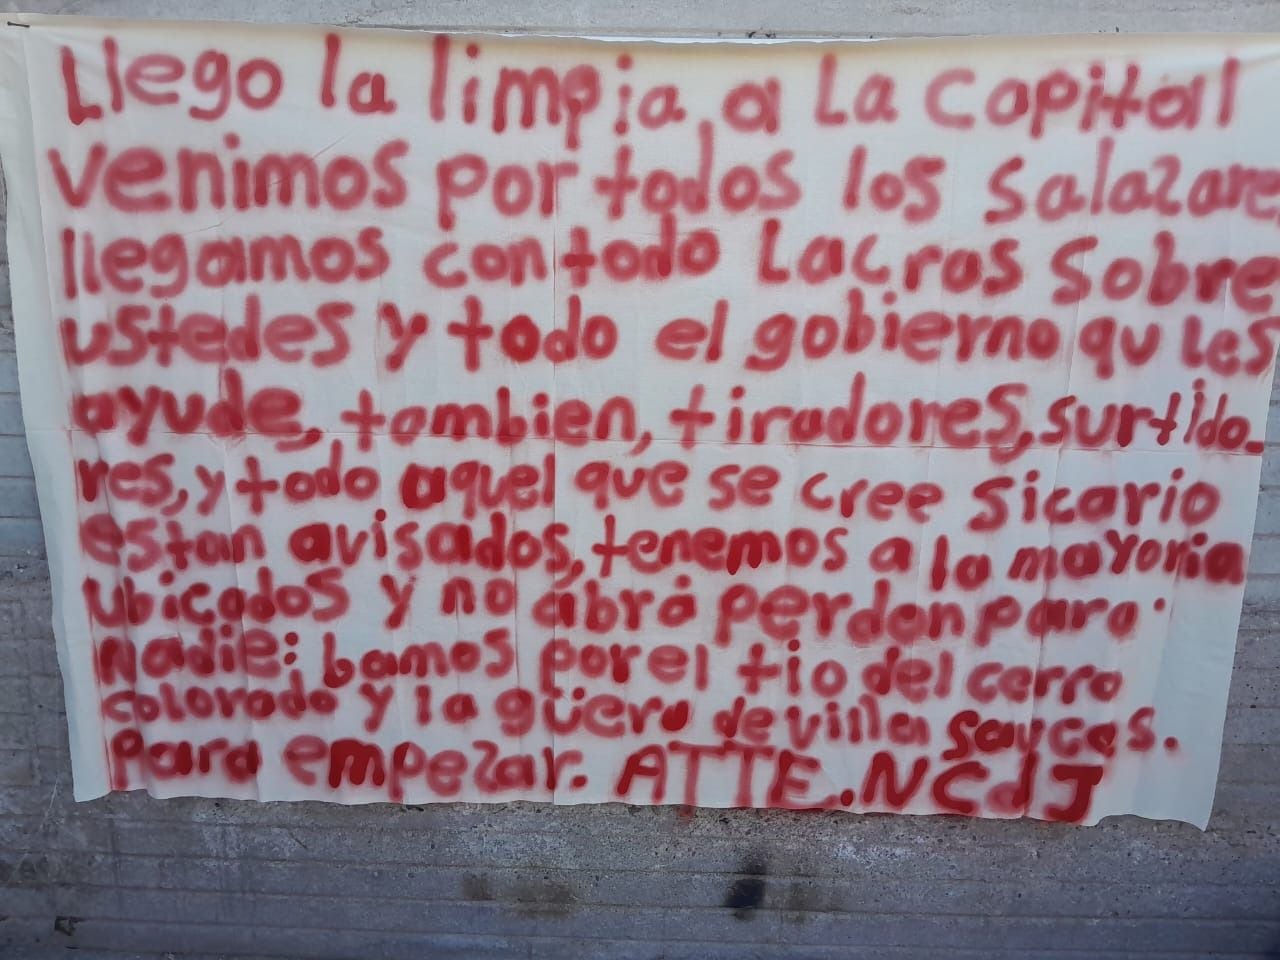 Llego la limpia, a La Capital
venimos por todos los Salazare
llegamos con todo Lacras Sobre
ustedes y todo el gobierno qu Les
ayude, tambien, tiradores, surtido-
res, y todo aquel que se cree Sicario
estan avisados, tenemos a la mayoria
Ubicados y no abrá perdon para
Nadie: bamos por el tio del cerro
colorado y la güera de villa Saycas.
Para empezar. ATTE. NCdJ